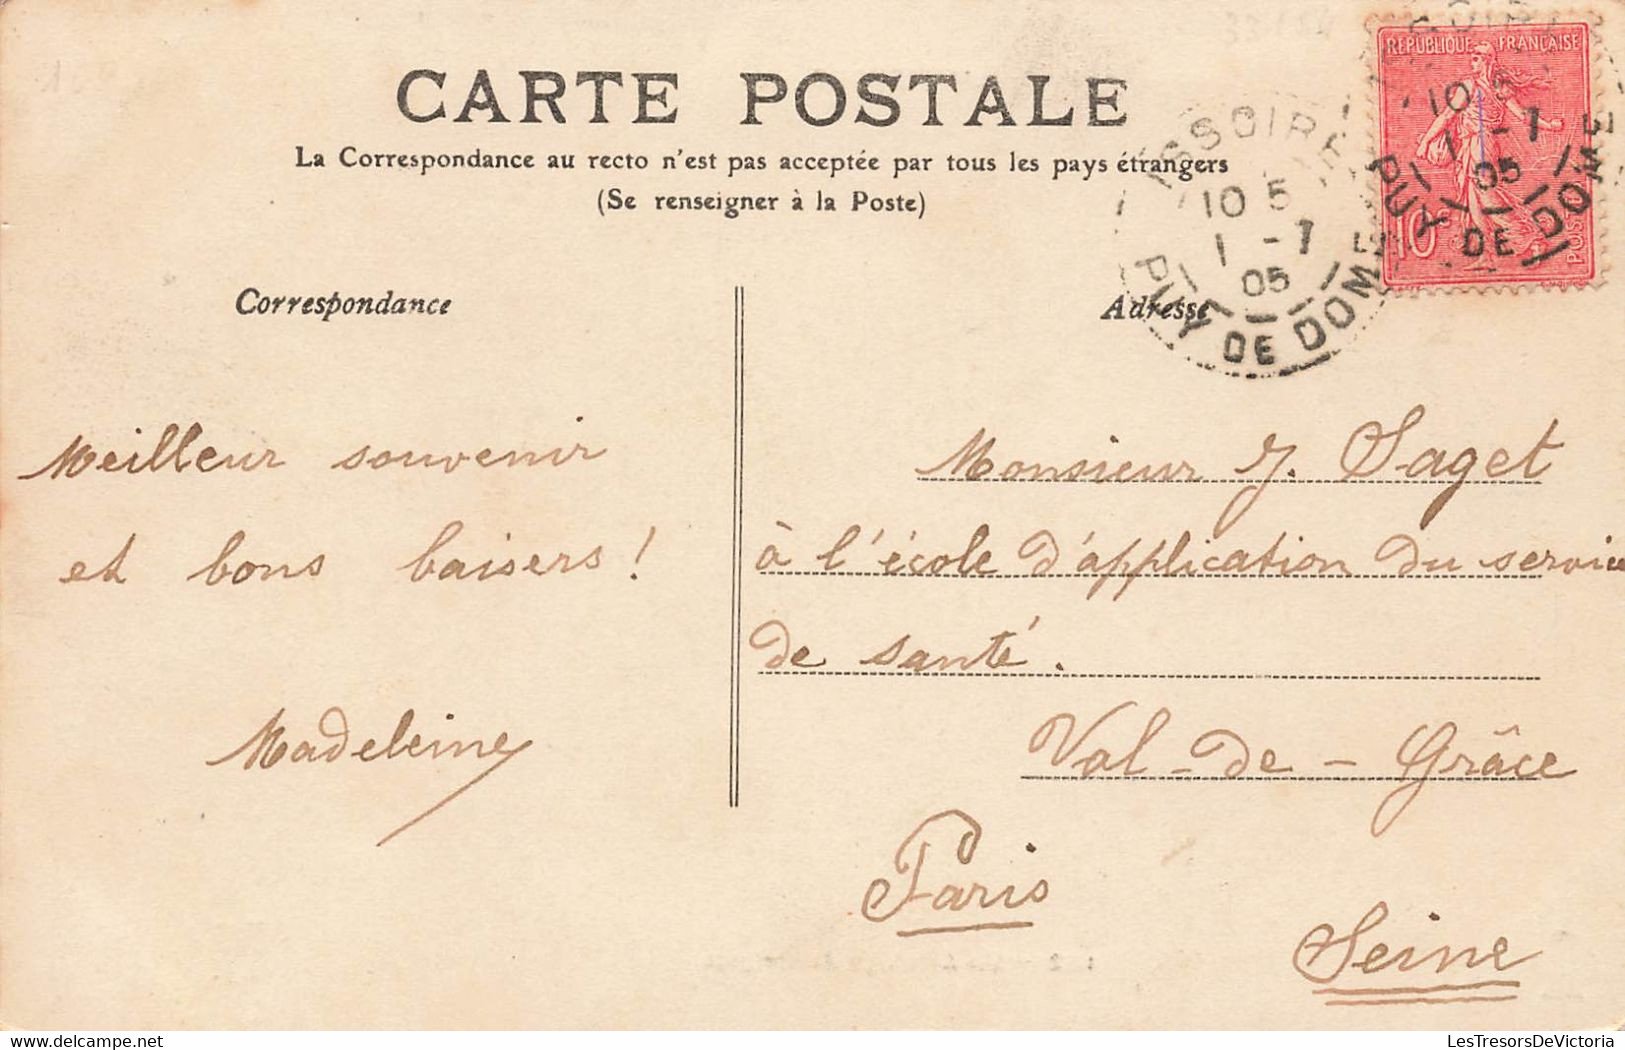 CARTE POSTALE
La Correspondance au recto n'est pas acceptée par tous les pays étrangers
(Se renseigner à la Poste)
REPUBLIQUE FRANÇAISE
10
POSTES
ISSOIRE
10 5
1 - 7
05
PUY DE DOME
10 5
1 - 7
05
PUY DE DOME
Correspondance
Adresse
Meilleur souvenir
et bons baisers !
Madeleine
Monsieur J. Saget
à l'école d'application du service
de santé.
Val-de-Grâce
Paris
Seine
LesTresorsDeVictoria
www.delcampe.net